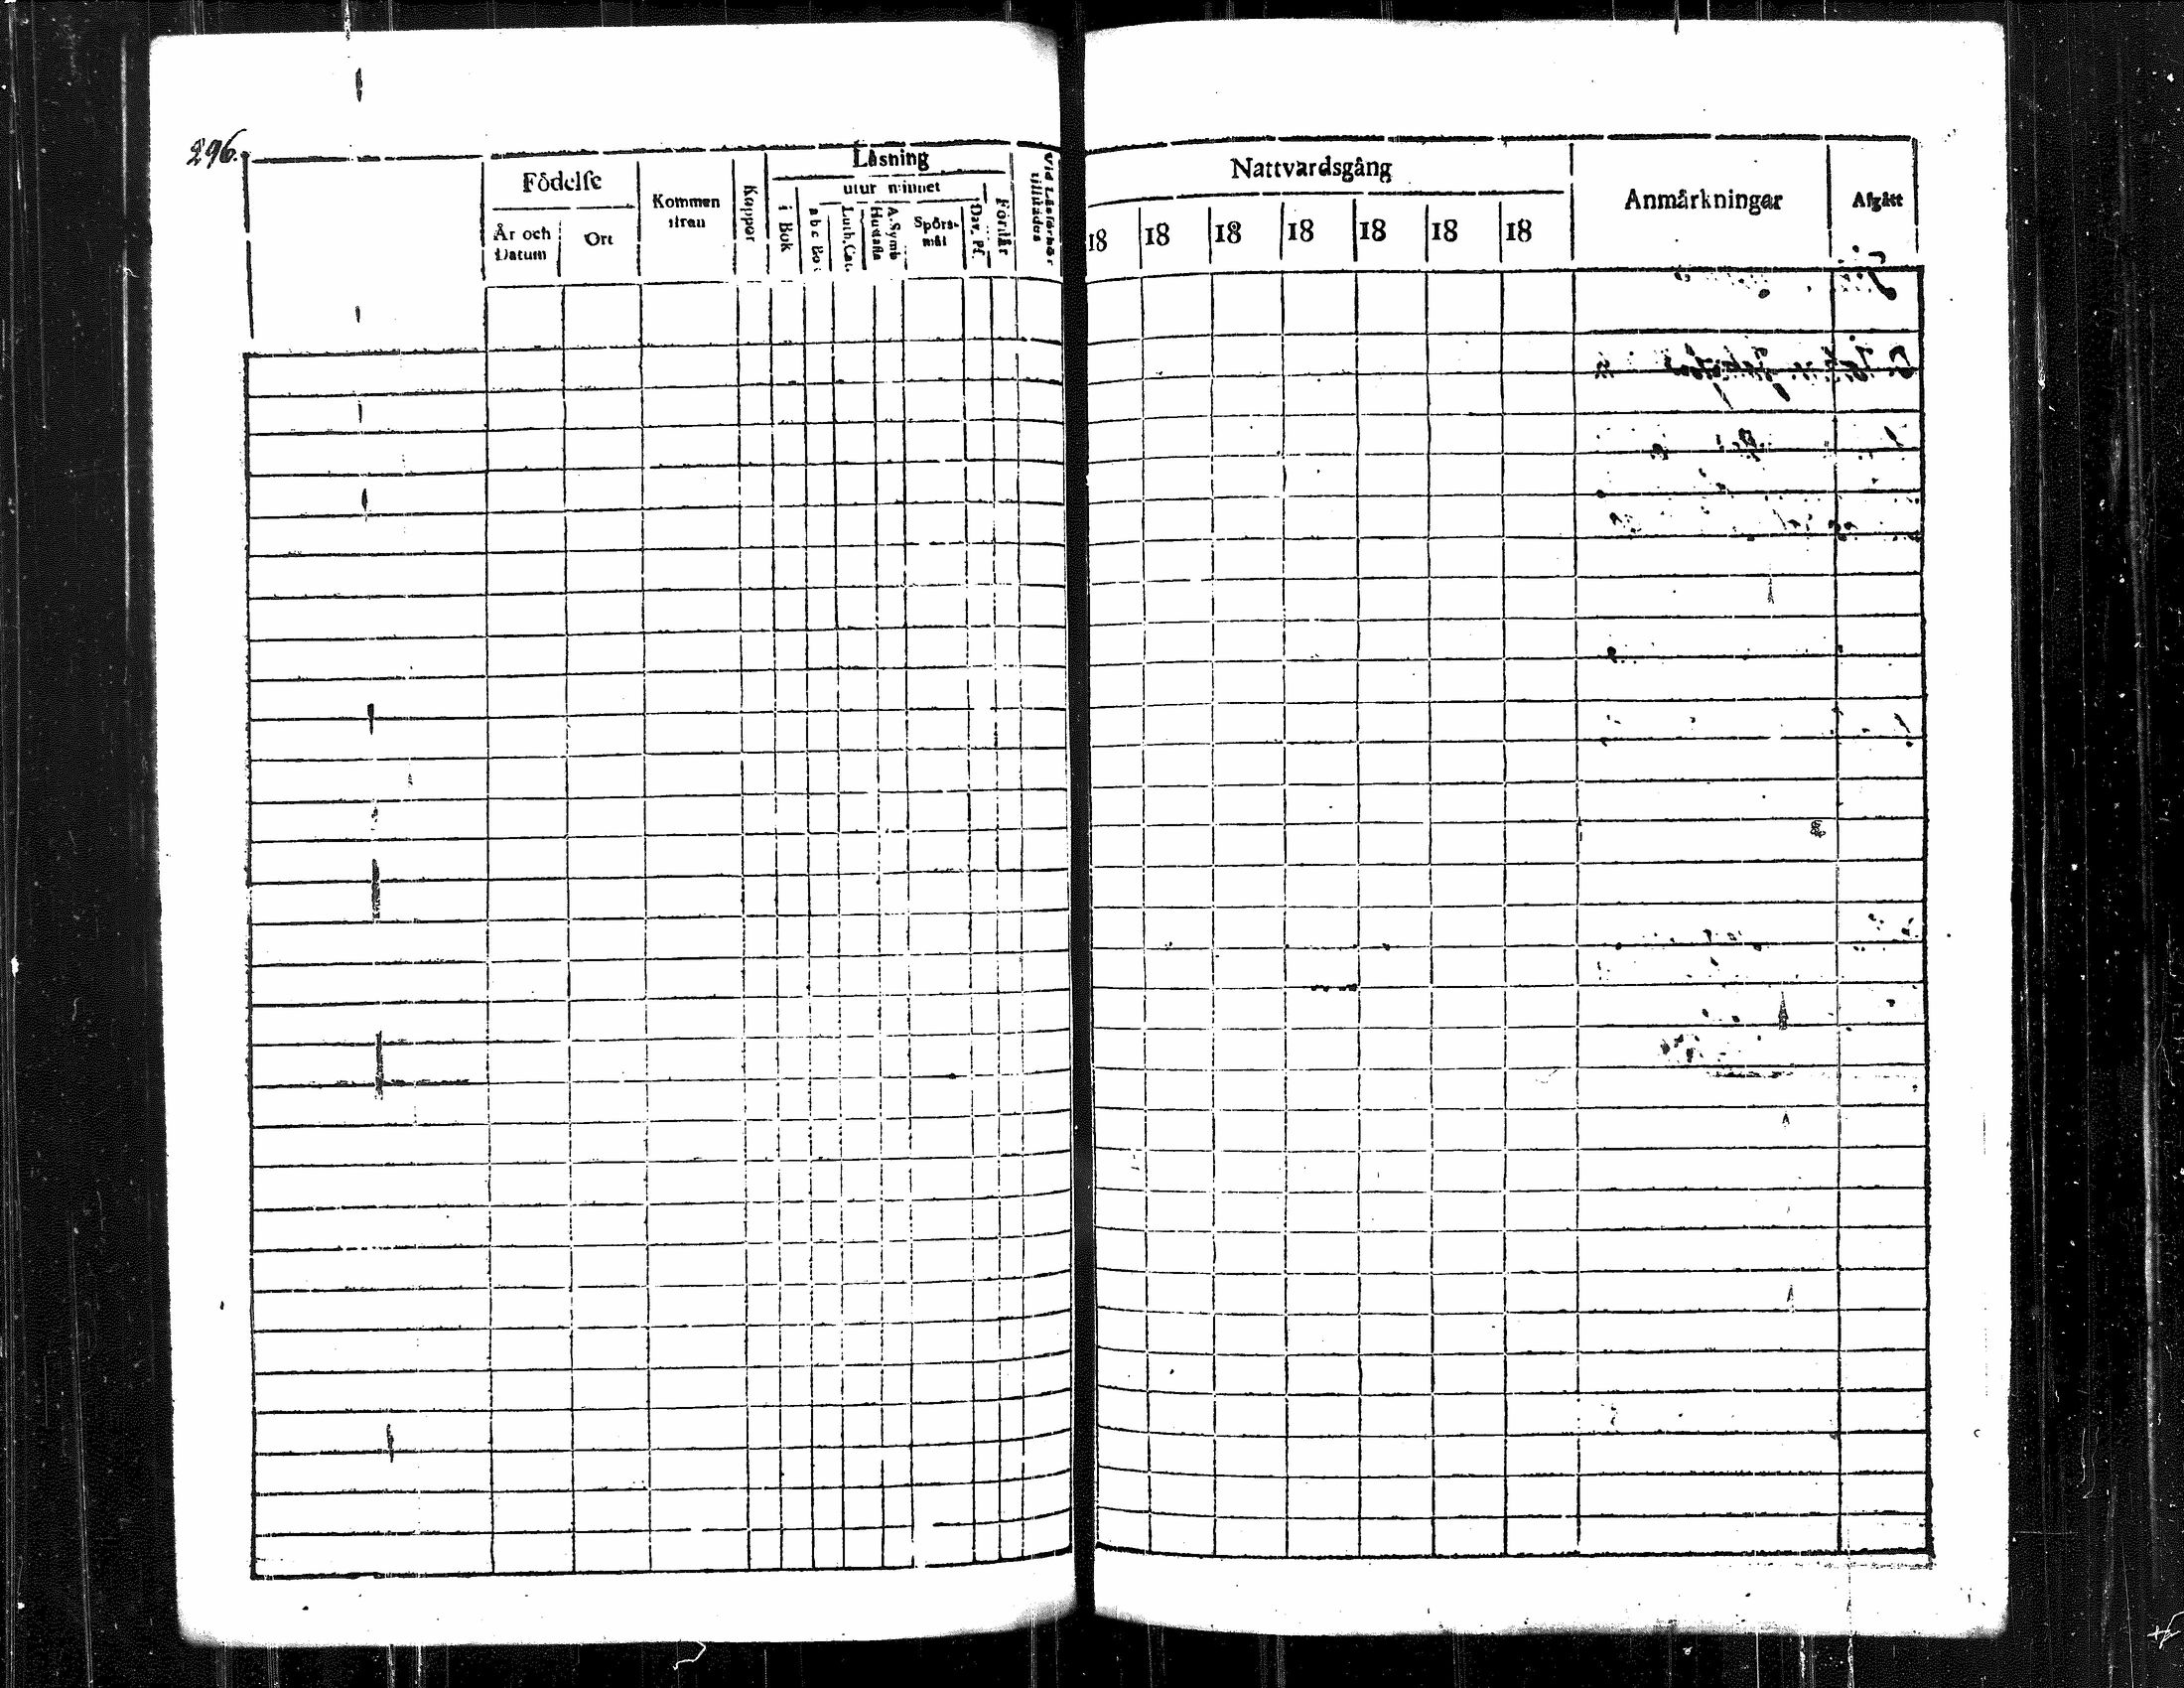 296.
Födelse
År och Datum
Ort
Kommen ifran
Koppor
Läsning
i Bok
utur minnet
abc Bok
Luth. Cat.
Hustafla
A. Symb
Spörsmål
Dav. Ps.
Förstår
Vid Läsförhör tillstädes
Nattvardsgång
18 18 18 18 18 18 18
Anmärkningar
Afgått